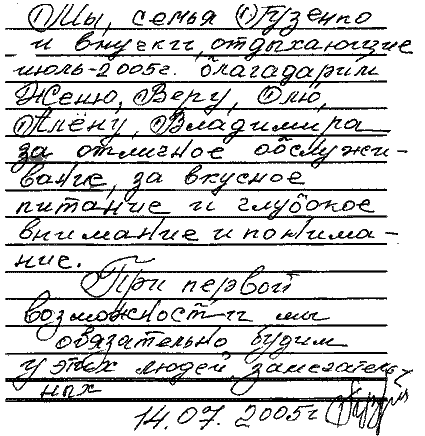 Мы, семья Гузенко
и внучки, отдыхающие
июль-2005г. благадарим
Женю, Веру, Олю,
Алёну, Владимира
за отличное обслужи-
вание, за вкусное
питание и глубокое
внимание и понима-
ние.
При первой
возможности мы
обязательно будим
у этих людей замечатель-
ных
14.07.2005г